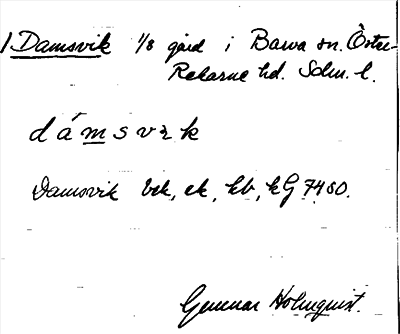 1 Damsvik 1/8 gård i Barva sn. Öster-
Rekarne hd. Södm. l.
dámsvɩk
Damsvik bek, ek, kb, hG 7480.
Gunnar Holmquist.